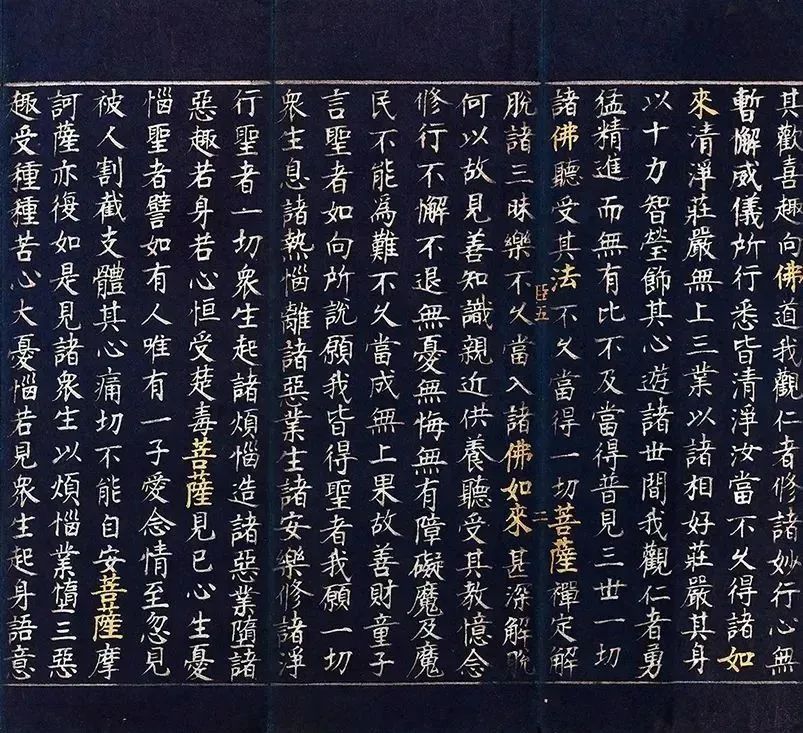 其歡喜趣向佛道我觀仁者修諸妙行心無
暫懈威儀所行悉皆清淨汝當不久得諸如
來清淨莊嚴無上三業以諸相好莊嚴其身
以十力智瑩飾其心遊諸世間我觀仁者勇
猛精進而無有比不及當得普見三世一切
諸佛聽受其法不久當得一切菩薩禪定解
五 二
脫諸三昧樂不久當入諸佛如來甚深解脫
何以故見善知識親近供養聽受其教憶念
修行不懈不退無憂無悔無有障礙魔及魔
民不能為難不久當成無上果故善財童子
言聖者如向所說願我皆得聖者我願一切
眾生息諸熱惱離諸惡業生諸安樂修諸淨
行聖者一切眾生起諸煩惱造諸惡業墮諸
惡趣若身若心恒受楚毒菩薩見已心生憂
惱聖者譬如有人唯有一子愛念情至忽見
被人割截支體其心痛切不能自安菩薩摩
訶薩亦復如是見諸眾生以煩惱業墮三惡
趣受種種苦心大憂惱若見眾生起身語意